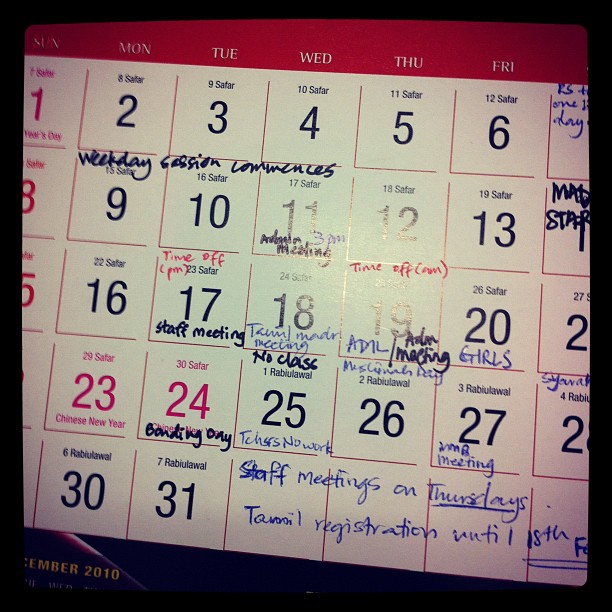 SUN MON TUE WED THU FRI
7 Safar 8 Safar 9 Safar 10 Safar 11 Safar 12 Safar
1 2 3 4 5 6
Year's Day
one
day
Weekday session commences
Safar 15 Safar 16 Safar 17 Safar 18 Safar 19 Safar
9 10 11 12 13
MAD
STAR
Admin 3 pm
meeting
22 Safar 23 Safar 24 Safar 26 Safar 27 S
Time off
(pm)
Time off (am)
16 17 18 19 20 2
staff meeting
Tamil madr
meeting
ADIL / Adm
meeting
GIRLS
No class
29 Safar 30 Safar 1 Rabiulawal 2 Rabiulawal 3 Rabiulawal 4 Rabiu
23 24 25 26 27 2
Chinese New Year Chinese New Year
Bonding Day
Tchers No work
meeting
6 Rabiulawal 7 Rabiulawal
30 31
Staff meetings on Thursdays
Tamil registration until 18th Fe
CEMBER 2010
TUE WED